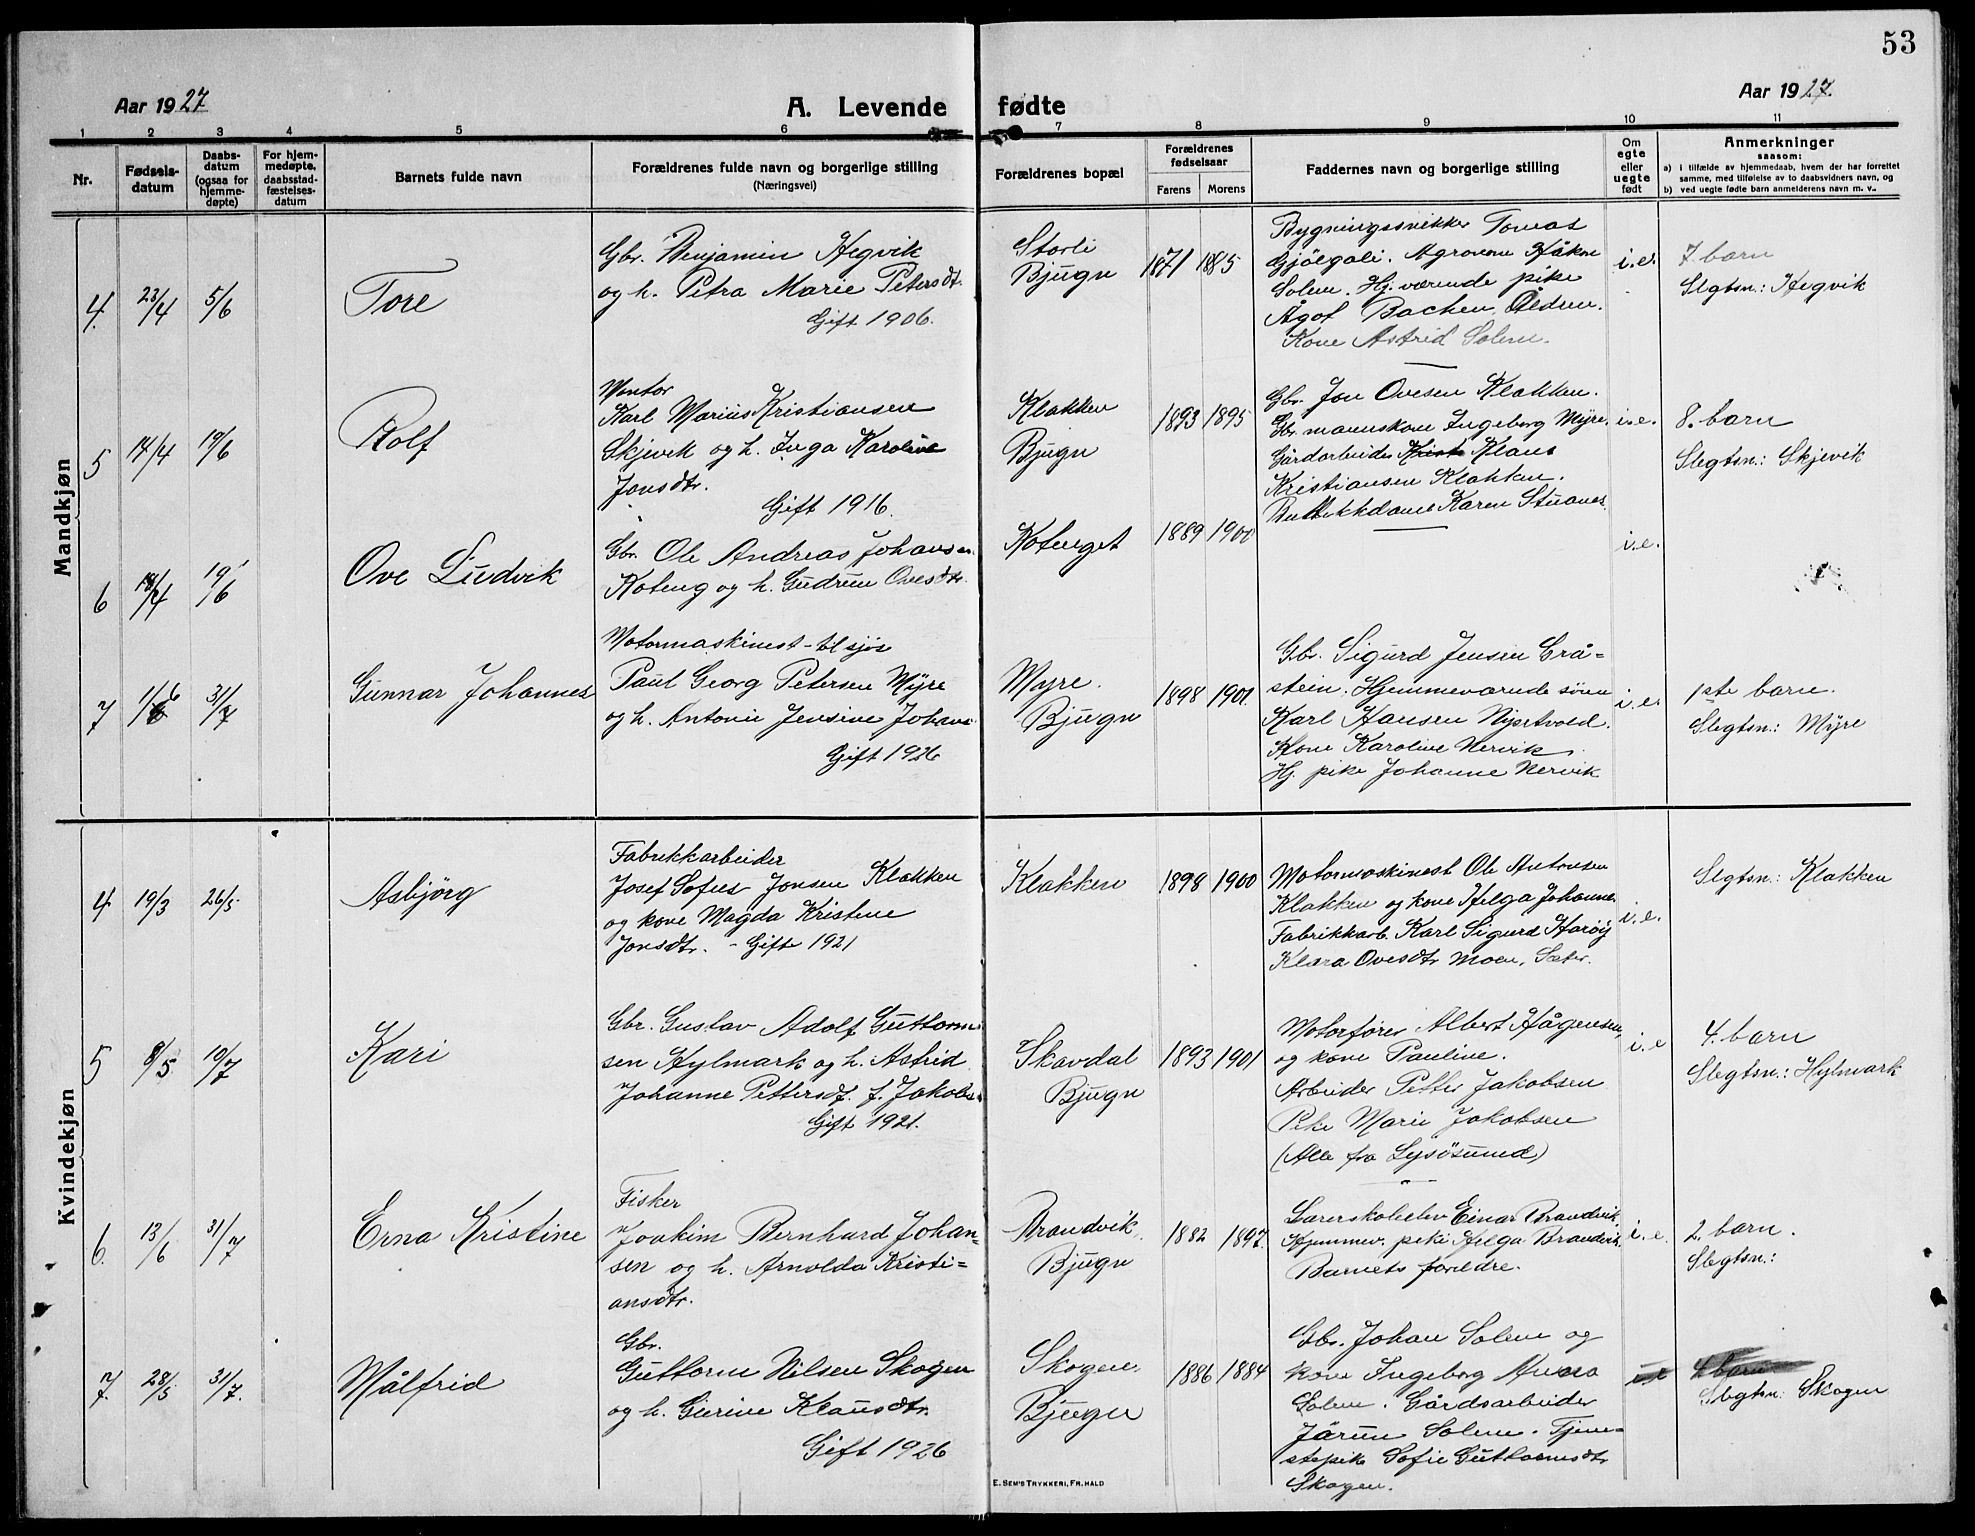 53
Aar 1927
A. Levende fødte
Aar 1927.
1 2 3 4 5 6 7 8 9 10 11
Nr.
Fødsels-
datum
Daabs-
datum
(ogsaa for
hjemme-
døpte)
For hjem-
medøpte,
daabsstad-
fæstelses-
datum
Barnets fulde navn
Forældrenes fulde navn og borgerlige stilling
(Næringsvei)
Forældrenes bopæl
Forældrenes
fødselsaar
Farens Morens
Faddernes navn og borgerlige stilling
Om
egte
eller
uegte
født
Anmerkninger
saasom:
a) i tilfælde av hjemmedaab, hvem der har forrettet
samme, med tilføielse av to daabsvidners navn, og
b) ved uegte fødte barn anmelderens navn m. v..
Mandkjøn
4. 23/4 5/6
Tore
Gbr. Benjamin Hegvik
og h. Petra Marie Petersdt.
Gift 1906.
Storli
Bjugn
1871 1885
Bygningssnikker Tomas
Gjölgali. Agronom Håkon
Solem. Hj.værende pike
Bachen Oldren.
Kone Astrid Solem.
i.e.
7. barn
Slgtsn.: Hegvik
5 14/4 19/6
Rolf
Montør
Karl Marius Kristiansen
Skjevik og h. Inga Karoline
Jonsdtr.
Gift 1916.
Klakken
Bjugn
1893 1895
Gbr. Jon Ovesen Klakken.
Gbr.mannskone Ingeborg Myre.
Gårdarbeider Klaus
Kristiansen Klakken.
Butikkdame Karen Stuanes
i.e.
8. barn
Slegtsn.: Skjevik
6 18/4 19/6
Ove Ludvik
Gbr. Ole Andreas Johansen
Koteng og h. Gudrun Ovesdtr.
Kotenget
1889 1900
i.e.
7 1/6 31/7
Gunnar Johannes
Motormaskinist - til sjøs
Paul Georg Petersen Myre
og h. Antonie Jensine Johans
Gift 1926
Myre.
Bjugn
1898 1901.
Gbr. Sigurd Jensen Grå=
stein. Hjemmeværende sönn
Karl Hansen
Kone Karoline Nervik
Hj. pike Johanne Nervik
i.e.
1ste barn.
Slegtsn.: Myre
Kvindekjøn
4 19/3 26/5
Asbjörg
Fabrikkarbeider
Josef Sofus Jonsen Klakken
og kone Magda Kristine
Jonsdtr. - Gift 1921
Klakken
1898 1900
Motormaskinist Ole Antonsen
Klakken og kone Helga Johanne.
Fabrikkarb. Karl Sigurd Harøy
Klara Ovesdtr Moen, Sæter.
i.e.
Slgtsn.: Klakken
5 8/5 10/7
Kari
Gbr. Gustav Adolf Guttorm-
sen Hylmark og h. Astrid
Johanne Pettersdt. f. Jakobs.
Gift 1921.
Skavdal
Bjugn
1893 1901
Motorfører Albert Hågensen,
og kone Pauline.
Arbeider Petter Jakobsen
Pike Marie Jakobsen
(Alle fra Lysösund)
i.e
4. barn
Slegtsn.: Hylmark
6. 13/6 31/7
Erna Kristine
Fisker
Joakim Bernhard Johan-
sen og h. Arnolda Kristi=
ansdtr.
Brandvik
Bjugn
1882 1897.
Lærerskoleelev Einar Brandvik.
Hjemmev. pike Helga Brandvik.
Barnets foreldre.
i. e.
2. barn.
Slegtsn.:
7. 28/5 31/7.
Målfrid
Gbr.
Guttorm Nilsen Skogen
og h. Gurine Klausdtr.
Gift 1926
Skogen
Bjugn
1886 1884
Gbr. Johan Solem og
kone Ingeborg Anna
Solem. Gårdsarbeider
Jörun Solem. Tjene-
stepike Sofie Guttormsdtr
Skogen.
i.e
Slegtsn: Skogen
E. SEM'S TRYKKERI, FR.HALD